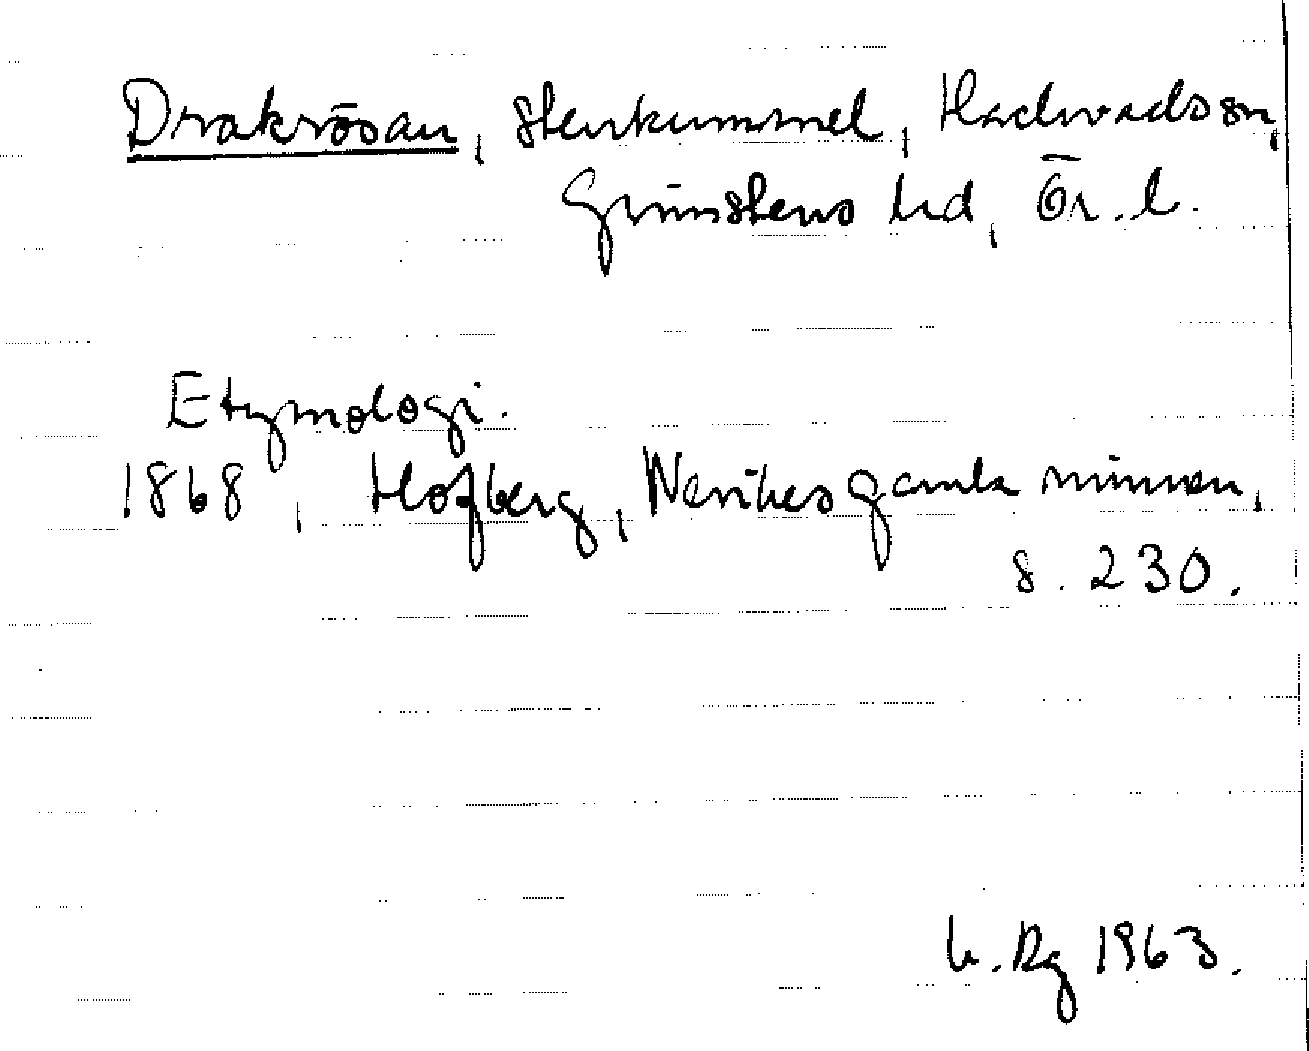 Drakrösan, stenkummel, Hackvads sn,
Grimstens hd, Ör. l.
Etymologi.
1868, Hofberg, Nerikes gamla minnen,
s. 230.
Rg 1963.